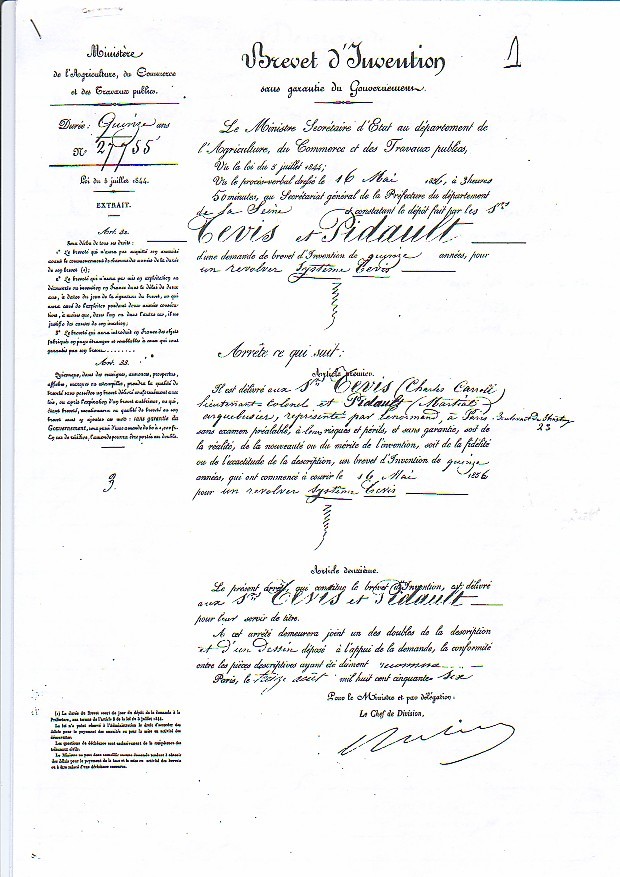 1
Ministère
de l'Agriculture, du Commerce
et des Travaux publics.
Durée: Quinze ans
N° 27755
Loi du 5 juillet 1844.
EXTRAIT.
Art. 32.
Sera déchu de tous ses droits:
1° Le breveté qui n'aura pas acquitté son annuité
avant le commencement de chacune des années de la durée
de son brevet (1);
2° Le breveté qui n'aura pas mis en exploitation sa
découverte ou invention en France dans le délai de deux
ans, à dater du jour de la signature du brevet, ou qui
aura cessé de l'exploiter pendant deux années consécu-
tives, à moins que, dans l'un ou dans l'autre cas, il ne
justifie des causes de son inaction;
3° Le breveté qui aura introduit en France des objets
fabriqués en pays étranger et semblables à ceux qui sont
garantis par son brevet........
Art. 33.
Quiconque, dans des enseignes, annonces, prospectus,
affiches, marques ou estampilles, prendra la qualité de
breveté sans posséder un brevet délivré conformément aux
lois, ou après l'expiration d'un brevet antérieur, ou qui,
étant breveté, mentionnera sa qualité de breveté ou son
brevet sans y ajouter ces mots: sans garantie du
Gouvernement, sera puni d'une amende de 50 à 1,000 fr.
En cas de récidive, l'amende pourra être portée au double.
3
Brevet d'Invention
sans garantie du Gouvernement.
Le Ministre Secrétaire d'État au département de
l'Agriculture, du Commerce et des Travaux publics,
Vu la loi du 5 juillet 1844;
Vu le procès-verbal dressé le 16 Mai 1856, à 3 heures
50 minutes, au Secrétariat général de la Préfecture du département
de la Seine et constatant le dépôt fait par les Srs
Tevis et Pidault
d'une demande de brevet d'Invention de quinze années, pour
un revolver Système Tevis
Arrête ce qui suit:
Article premier.
Il est délivré aux Srs Tevis (Charles Carroll)
lieutenant-Colonel et Pidault
arquebusier, représenté par Lenormand, à Paris
23
sans examen préalable, à leurs risques et périls, et sans garantie, soit de
la réalité, de la nouveauté ou du mérite de l'invention, soit de la fidélité
ou de l'exactitude de la description, un brevet d'Invention de quinze
années, qui ont commencé à courir le 16 Mai 1856
pour un revolver Système Tevis
Article deuxième.
Le présent arrêté, qui constitue le brevet d'Invention, est délivré
aux Srs Tevis et Pidault
pour leur servir de titre.
A cet arrêté demeurera joint un des doubles de la description
et d'un Dessin déposé à l'appui de la demande, la conformité
entre les pièces descriptives ayant été dûment reconnue
Paris, le août mil huit cent cinquante six
Pour le Ministre et par délégation.
Le Chef de Division,
(1) La durée du Brevet court du jour du dépôt de la demande à la
Préfecture, aux termes de l'article 8 de la loi du 5 juillet 1844.
La loi n'a point réservé à l'Administration le droit d'accorder des
délais pour le payement des annuités ou pour la mise en activité des
découvertes.
Les questions de déchéance sont exclusivement de la compétence des
tribunaux civils.